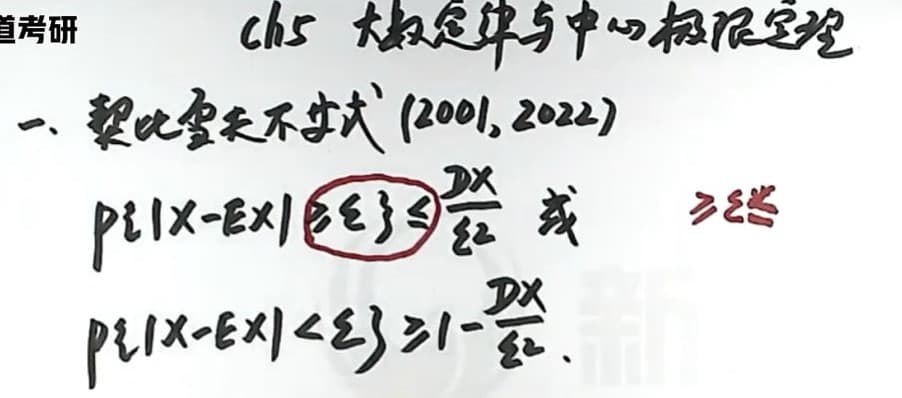 道考研
ch5 大数定律与中心极限定理
一、契比雪夫不等式 (2001, 2022)
P{|X-EX| ≥ε} ≤ DX/ε2 或
≥ε
P{|X-EX| < ε} ≥ 1 - DX/ε2.
新